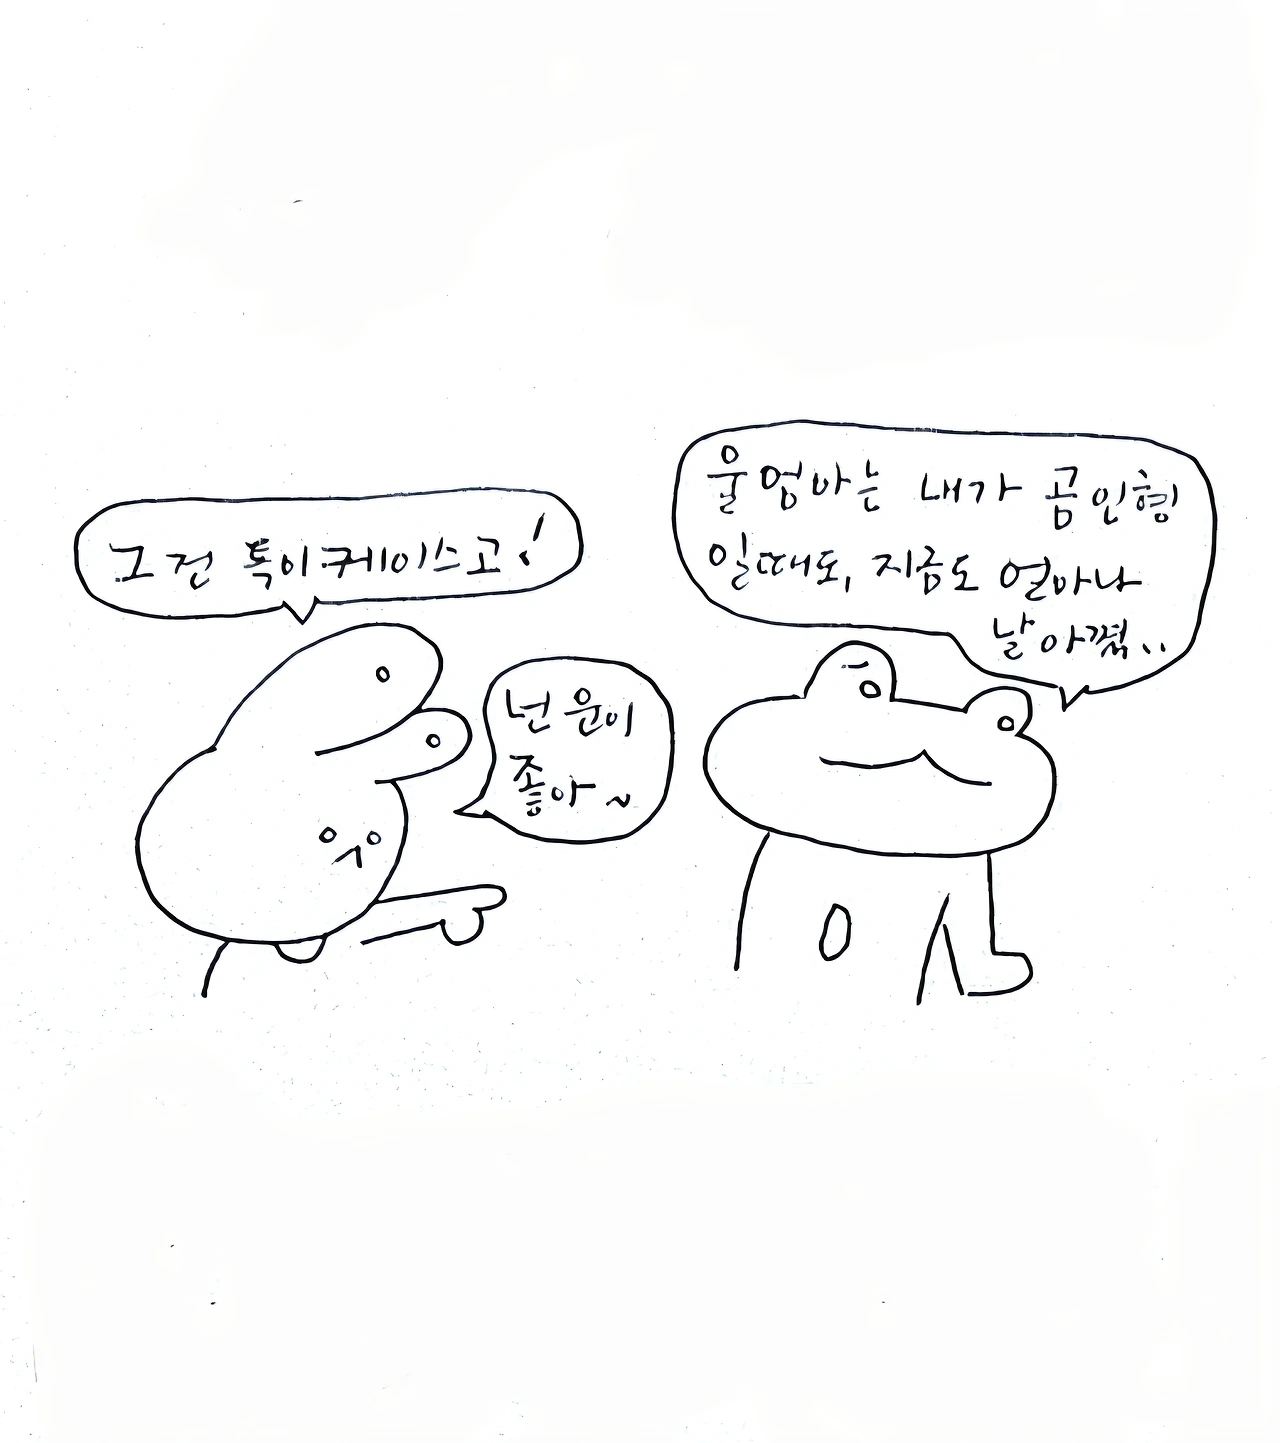 울엄마는 내가 곰인형
일때도, 지금도 얼마나
날아껴..
그건 특이케이스고!
넌 운이
좋아~